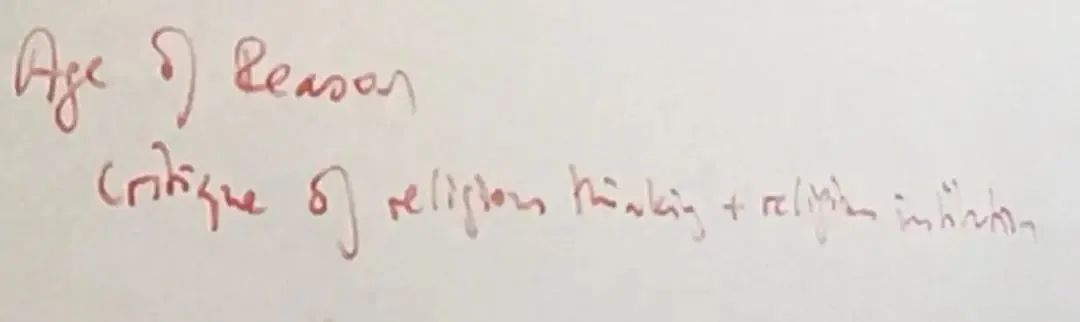 Age of Reason
Critique of religious thinking + religious institution